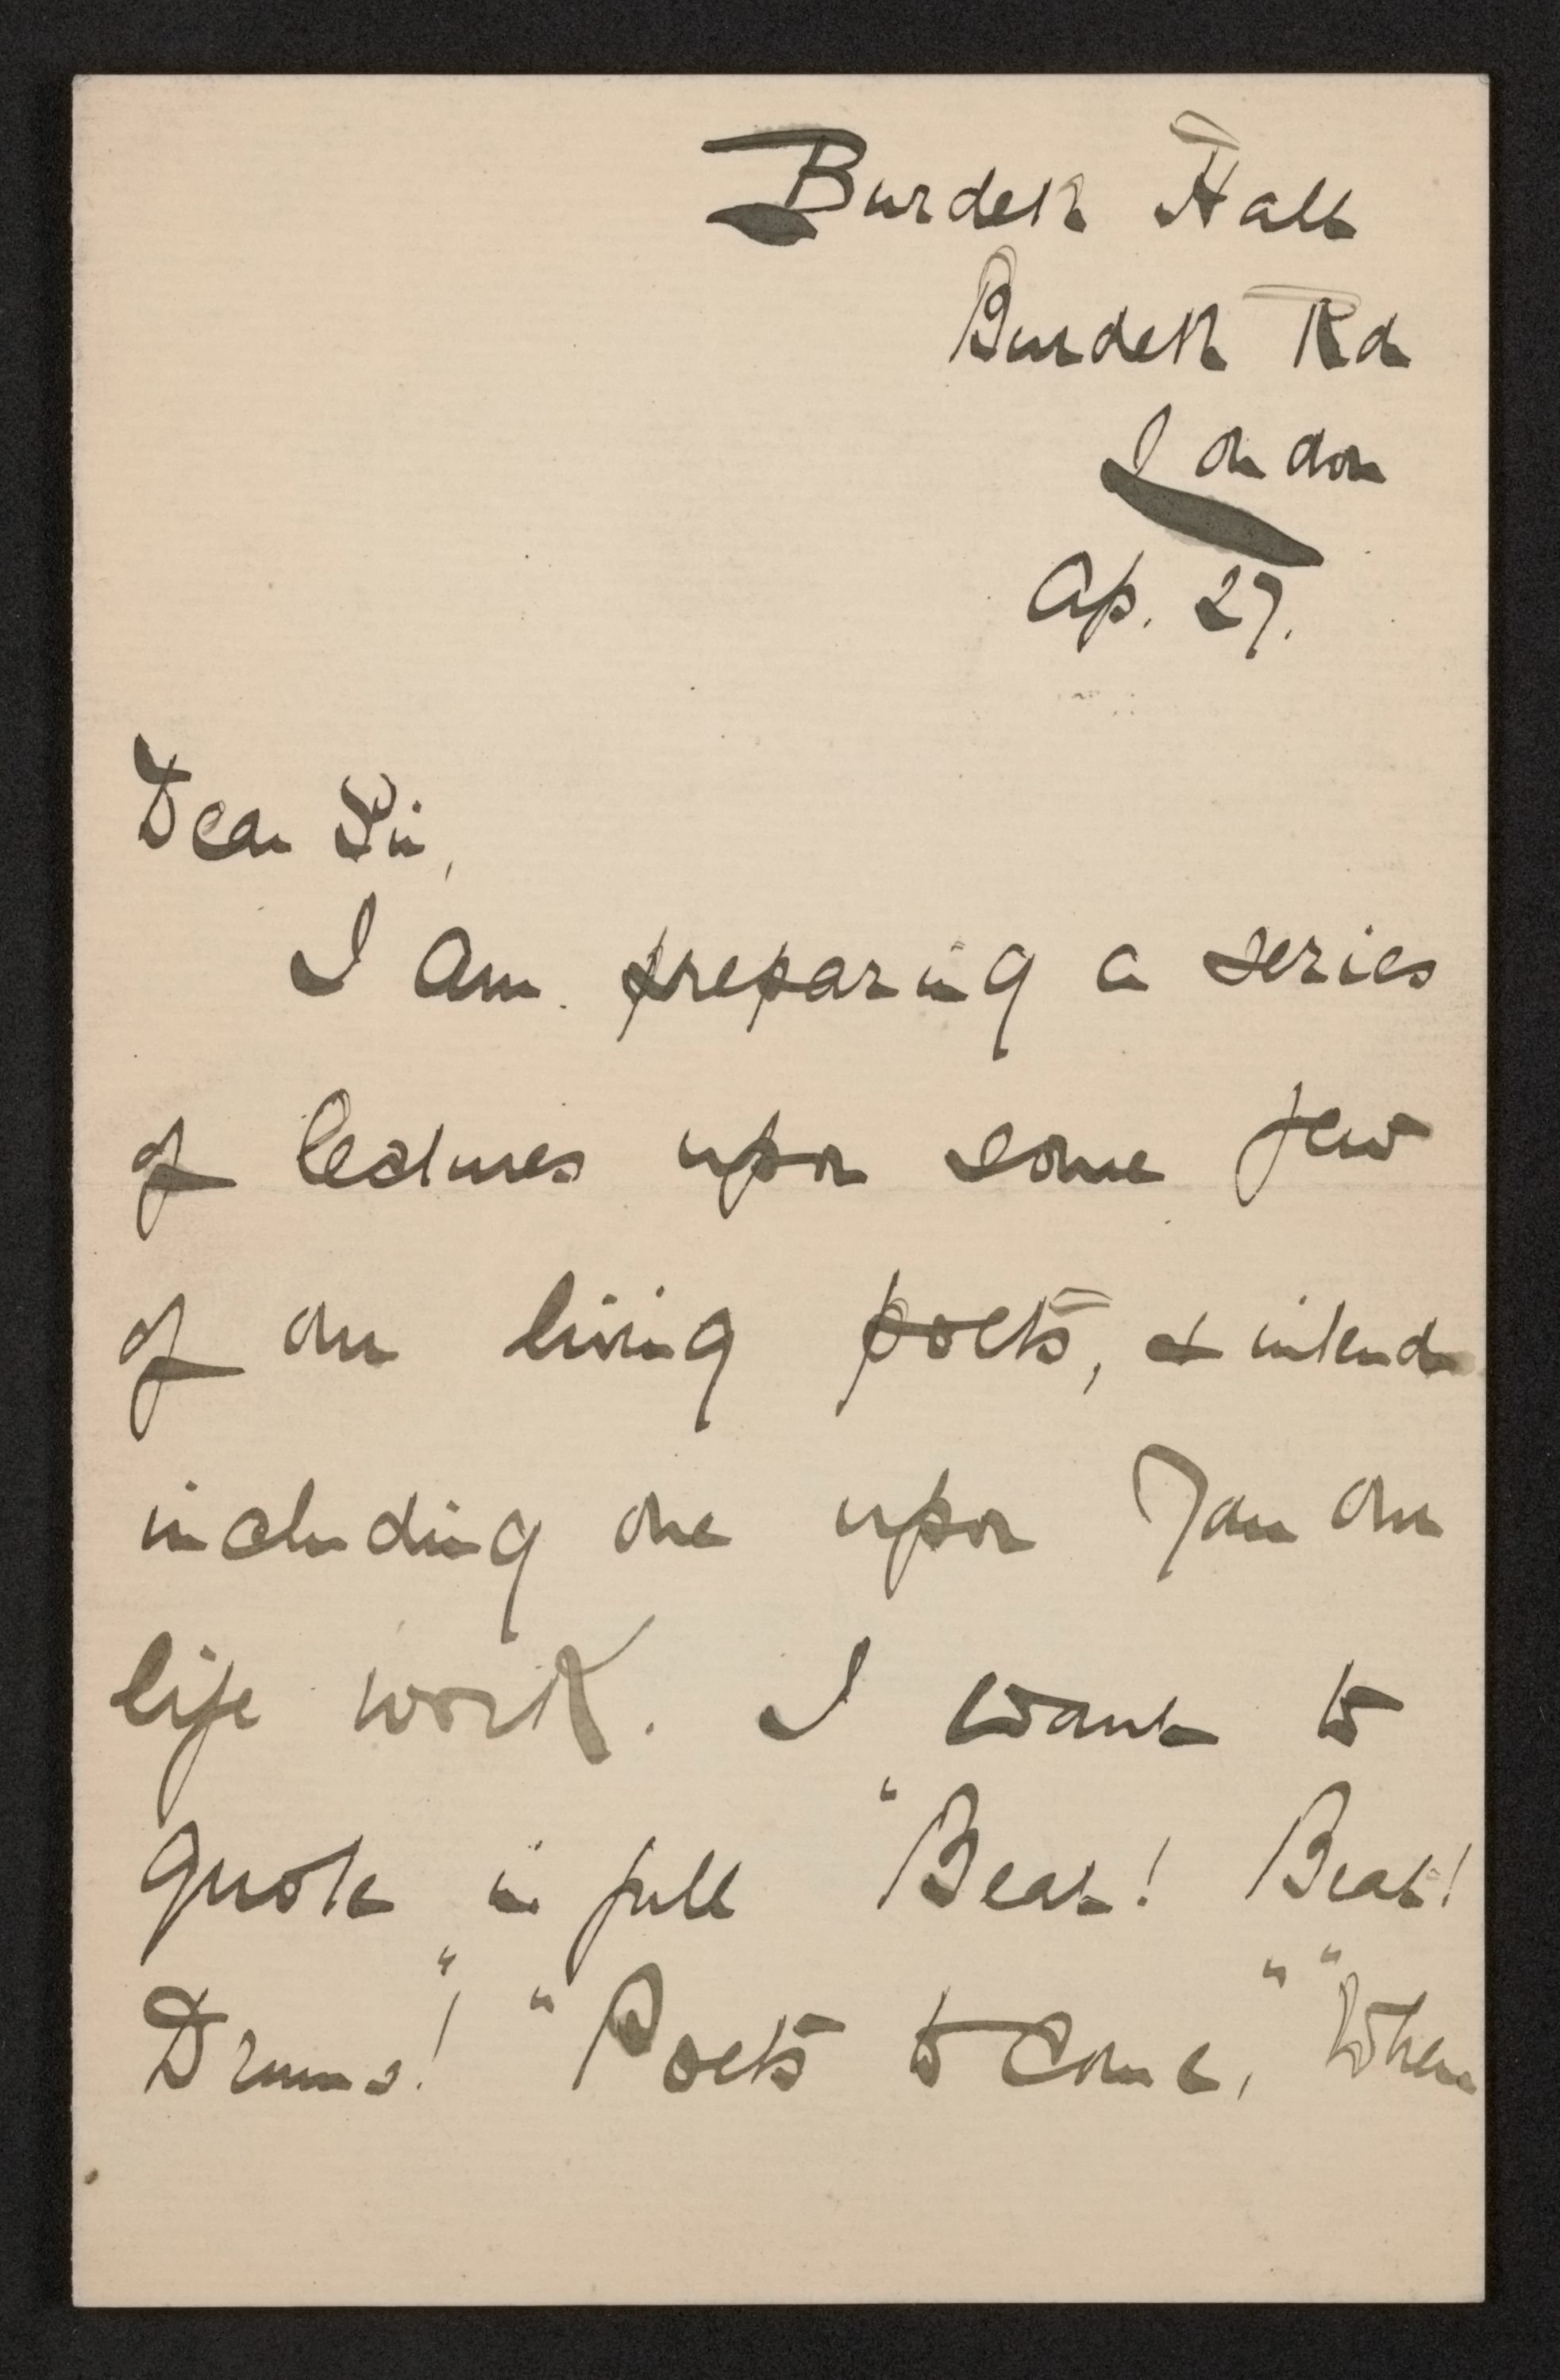 Burdett Hall
Burdett Rd
London
Ap. 27.
Dear Sir,
I am preparing a series
of lectures upon some few
of our living poets, & intend
including one upon your
life work. I want to
quote in full "Beat! Beat!
Drums!", "Poets to Come," "When